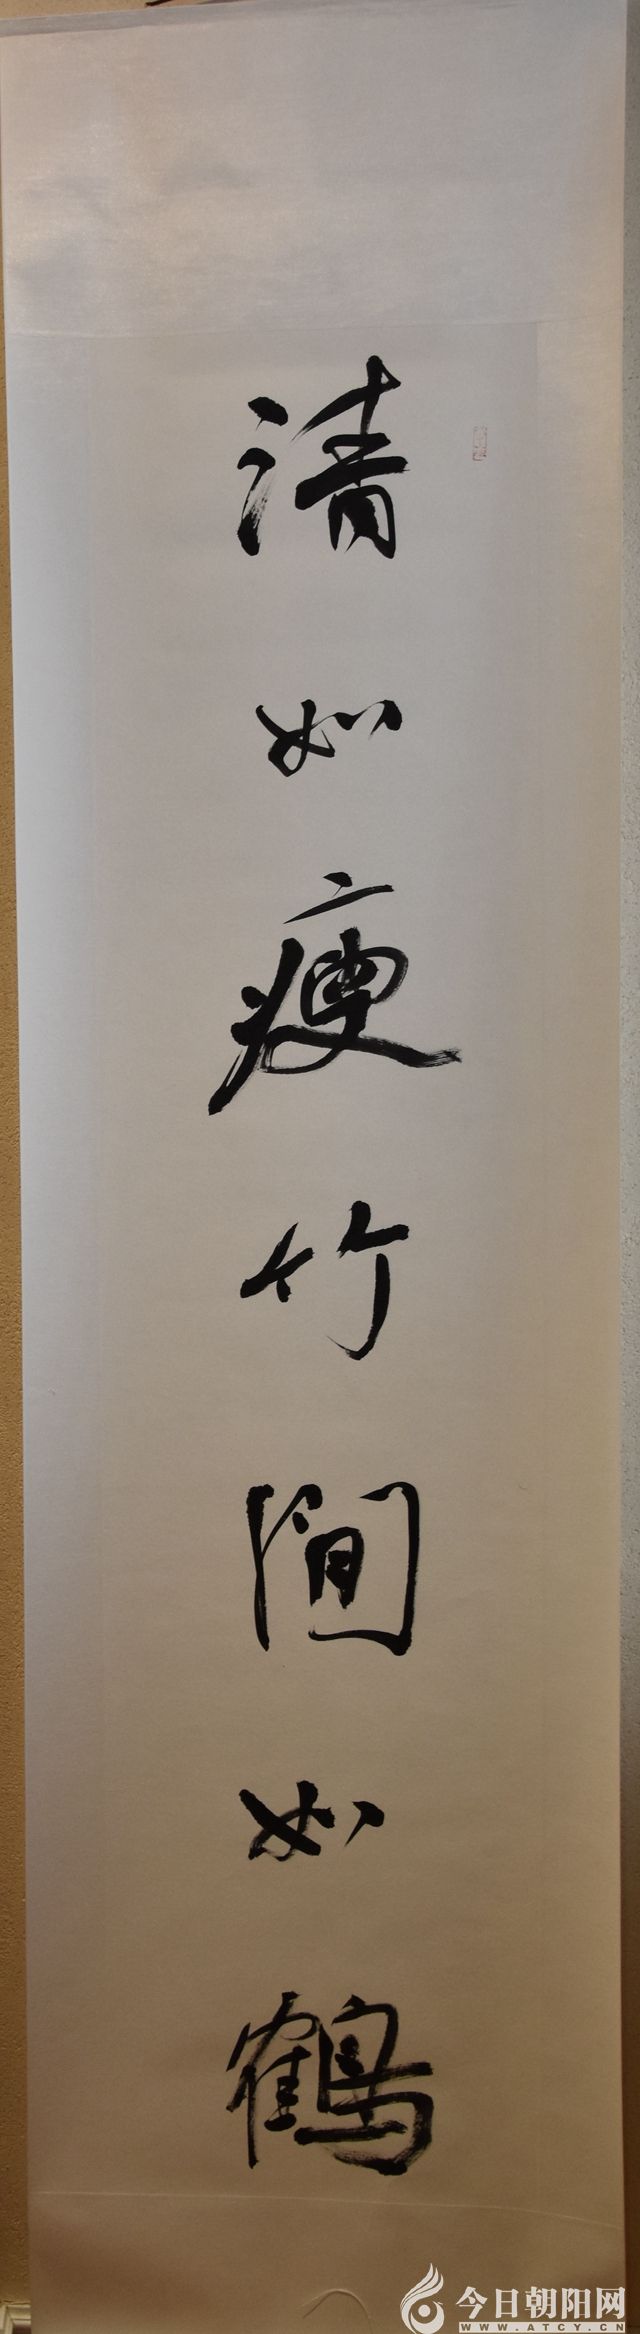 清如瘦竹閒如鶴
今日朝阳网
WWW.ATCY.CN